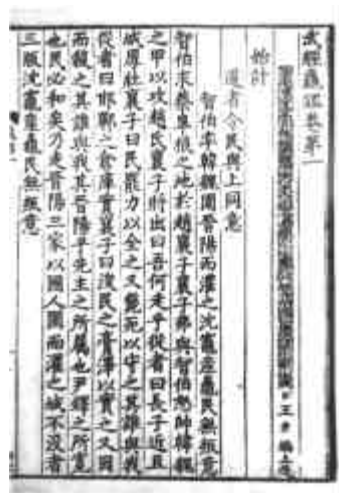 武經龜鑑卷第一
王
始計
道者令民與上同意
智伯率韓魏圍晉陽而灌之沈竈產鼃民無叛意
智伯求蔡皋狼之地於趙襄子襄子弗與智伯怒帥韓魏
之甲以攻趙氏襄子將出曰吾何走乎從者曰長子近且
城厚社襄子曰民罷力以全之又斃死以守之其誰與我
從者曰邯鄲之倉庫實襄子曰浚民之膏澤以實之又因
而殺之其誰與我其晉陽乎先主之所屬也尹鐸之所寬
也民必和矣乃走晉陽三家以國人圍而灌之城不沒者
三版沈竈產鼃民無叛意